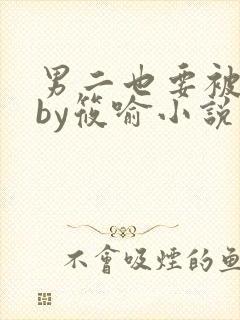 男二也要被
by筱喻小說
不會吸煙的魚